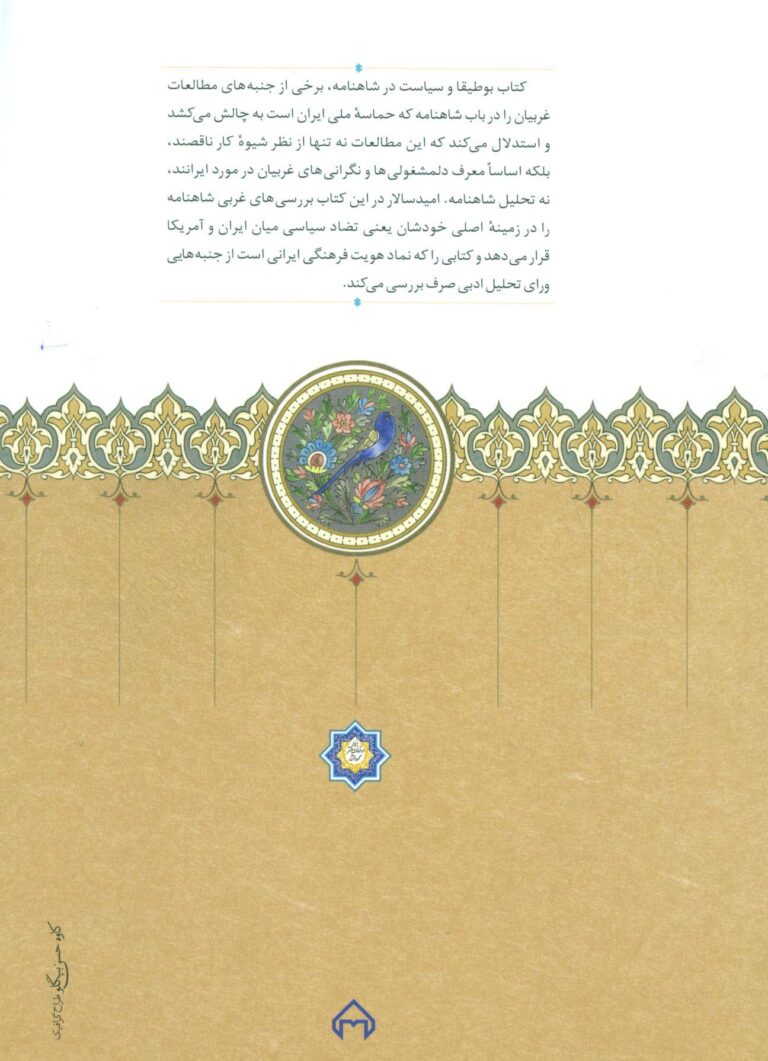 کتاب بوطیقا و سیاست در شاهنامه، برخی از جنبه‌های مطالعات
غربیان را در باب شاهنامه که حماسهٔ ملی ایران است به چالش می‌کشد
و استدلال می‌کند که این مطالعات نه تنها از نظر شیوهٔ کار ناقصند،
بلکه اساساً معرف دلمشغولی‌ها و نگرانی‌های غربیان در مورد ایرانند،
نه تحلیل شاهنامه. امیدسالار در این کتاب بررسی‌های غربی شاهنامه
را در زمینهٔ اصلی خودشان یعنی تضاد سیاسی میان ایران و آمریکا
قرار می‌دهد و کتابی را که نماد هویت فرهنگی ایرانی است از جنبه‌هایی
ورای تحلیل ادبی صرف بررسی می‌کند.
کاوه حسن بیگلو طراح گرافیک